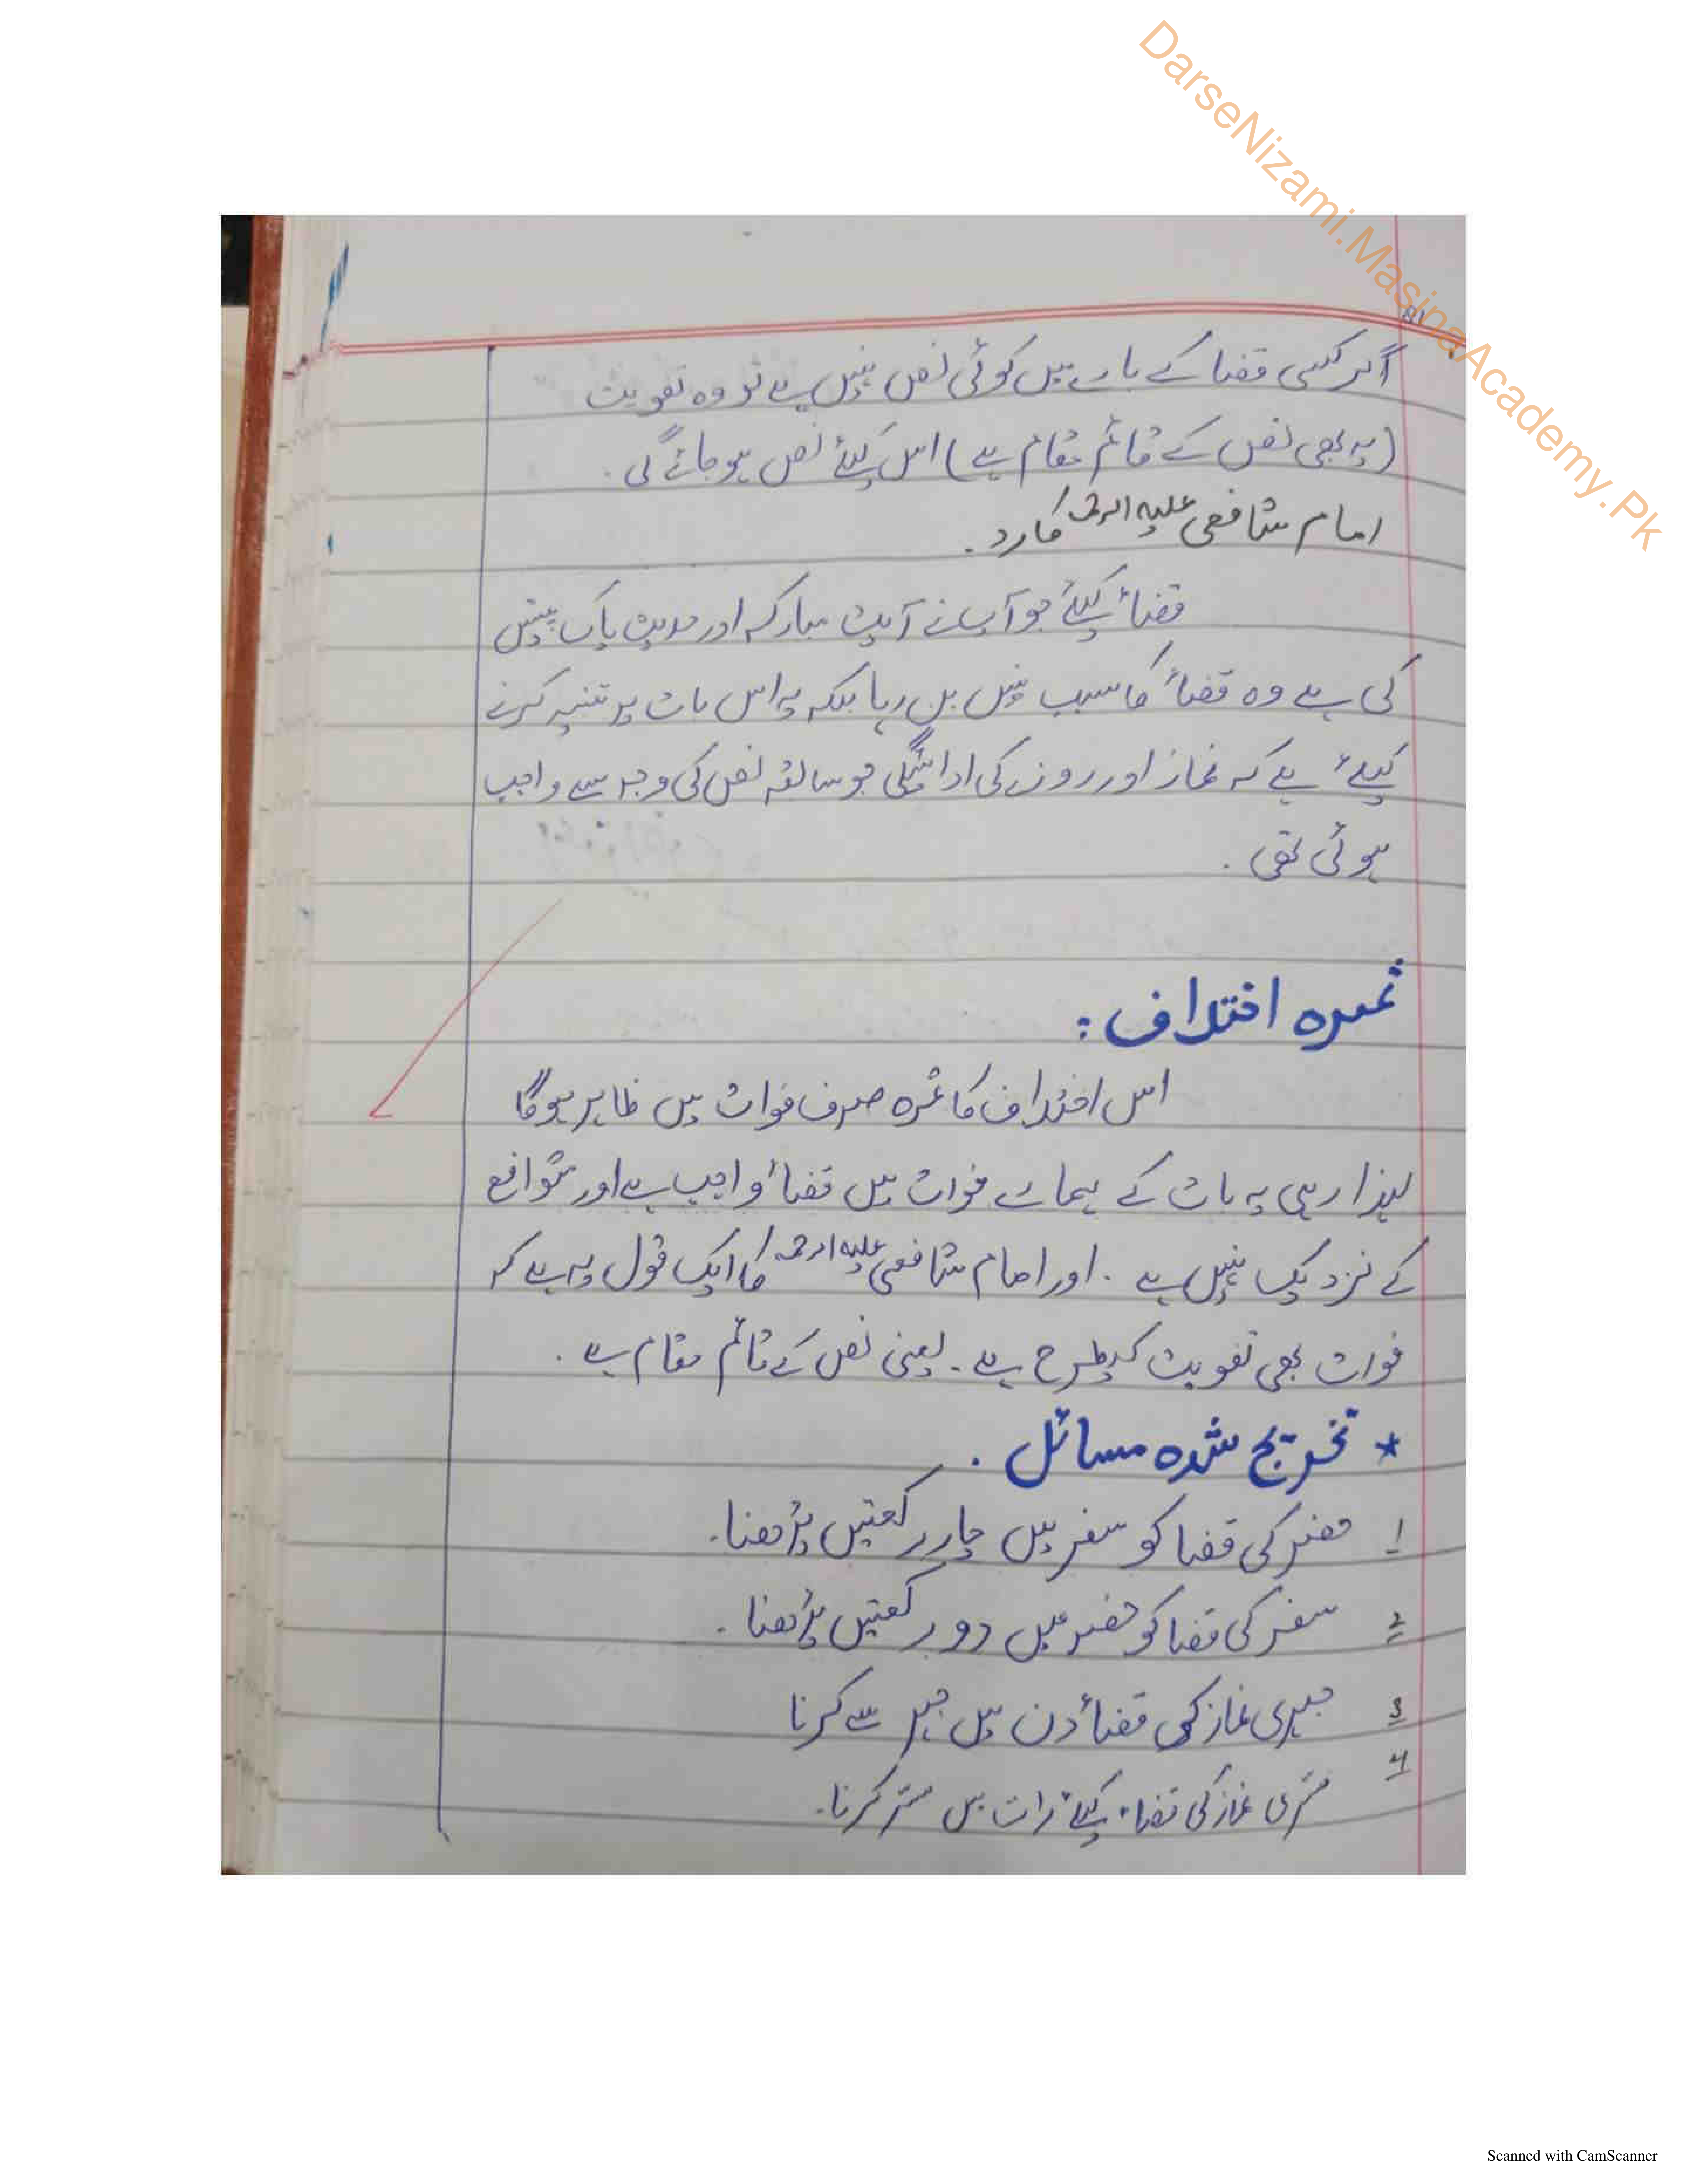 DarseNizami.MasinaAcademy.Pk
81
اگر کسی قضا کے بارے میں کوئی نص نہیں ہے تو وہ تفویت
(یہ بھی نص کے قائم مقام ہے) اس کیلئے نص ہو جائے گی.
امام شافعی علیہ الرحمہ کا رد.
قضاء کیلئے جو آپ نے آیت مبارکہ اور حدیث پاک پیش
کی ہے وہ قضاء کا سبب نہیں بن رہا بلکہ یہ اس بات پر تنبیہ کرنے
کیلئے ہے کہ نماز اور روزے کی ادائیگی جو سابقہ نص کی وجہ سے واجب
ہوئی تھی.
ثمرہ اختلاف:
اس اختلاف کا ثمرہ صرف فوات میں ظاہر ہوگا
لہذا رہی یہ بات کے ہمارے فوات میں قضاء واجب ہے اور شوافع
کے نزدیک نہیں ہے. اور امام شافعی علیہ الرحمہ کا ایک قول یہ ہے کہ
فوات بھی تفویت کیطرح ہے. یعنی نص کے قائم مقام ہے.
* تخریج شدہ مسائل.
1 حضر کی قضا کو سفر میں چار رکعتیں پڑھنا.
2 سفر کی قضا کو حضر میں دو رکعتیں پڑھنا.
3 جہری نماز کی قضاء دن میں جہر سے کرنا
4 سری نماز کی قضاء کیلئے رات میں سر کرنا.
Scanned with CamScanner